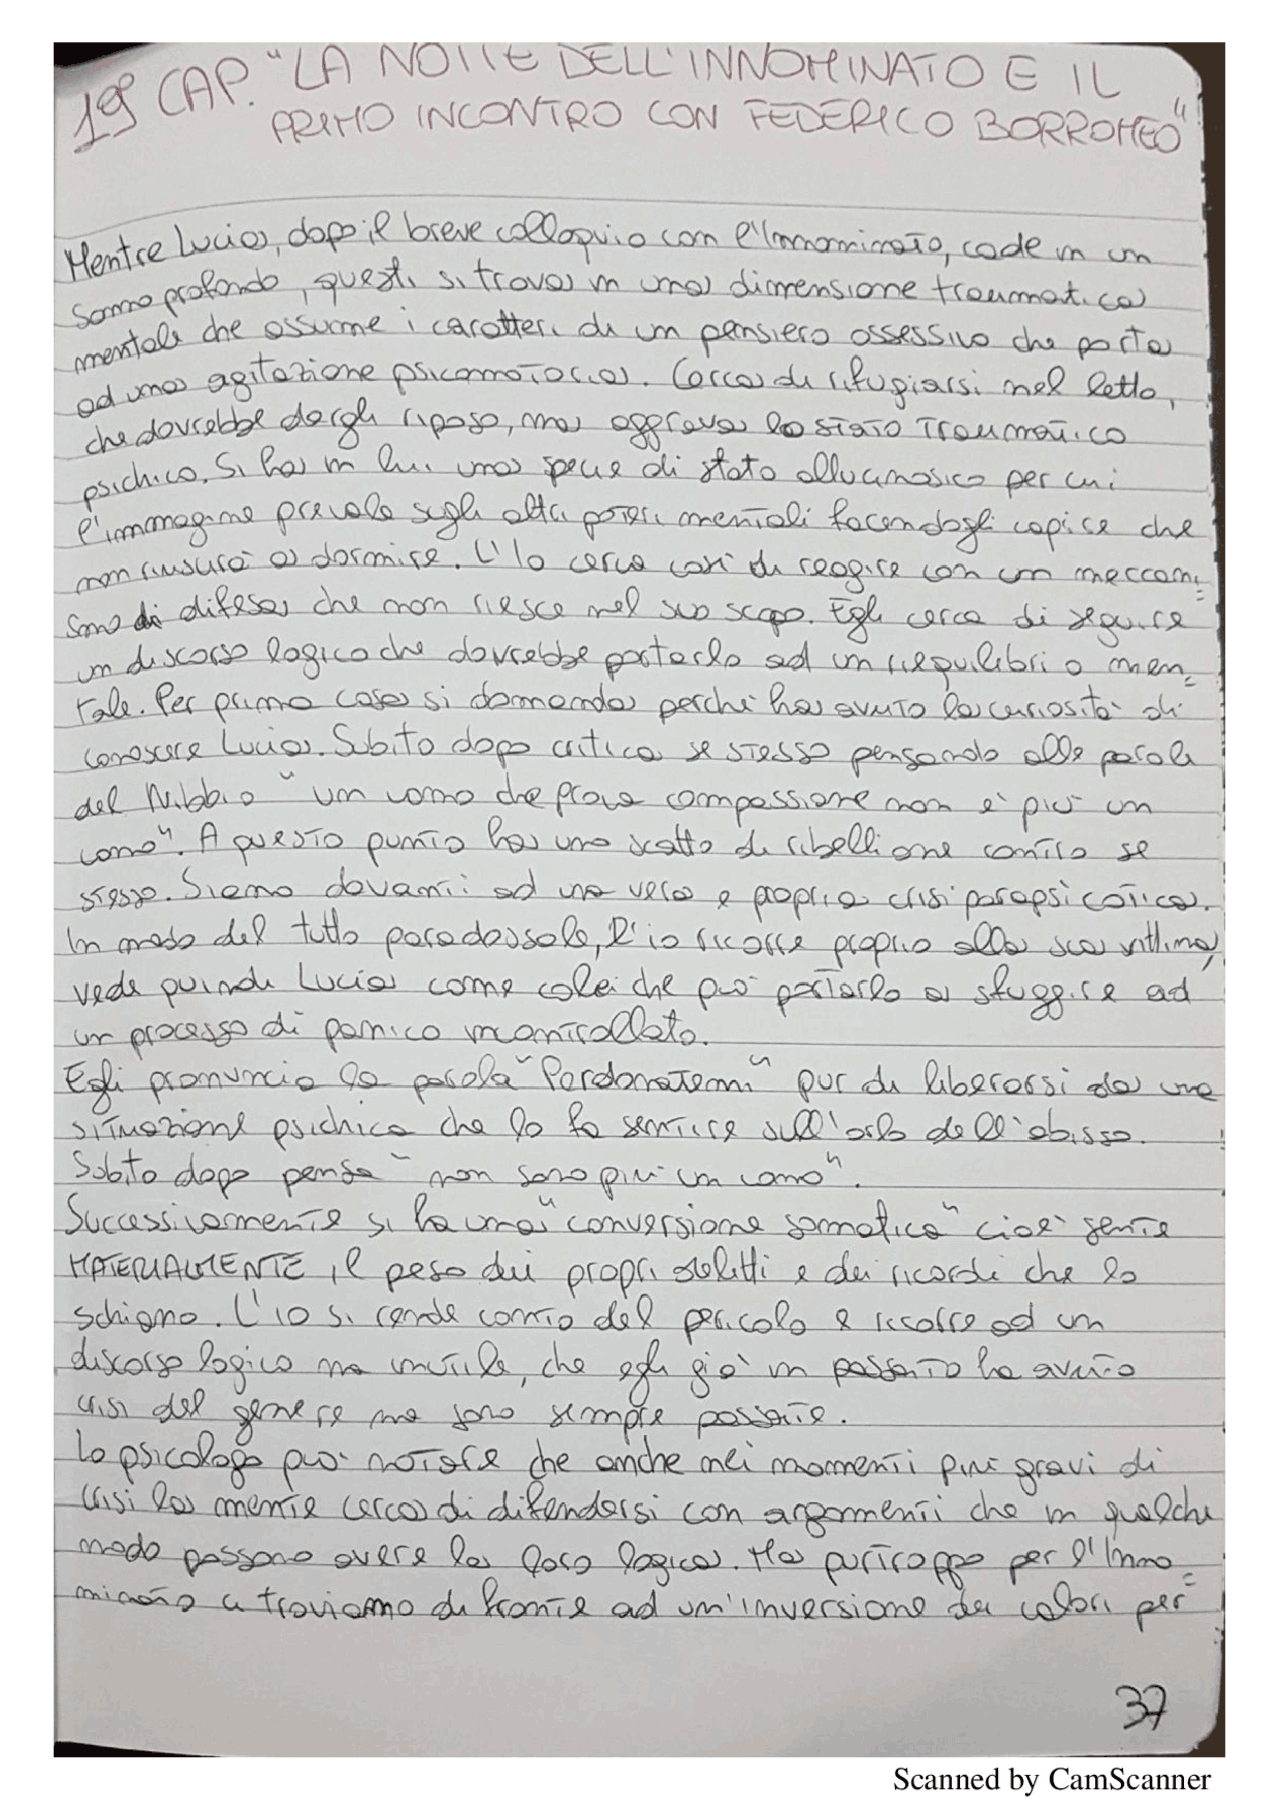 19° CAP. "LA NOTTE DELL'INNOMINATO E IL
PRIMO INCONTRO CON FEDERICO BORROMEO"
Mentre Lucia, dopo il breve colloquio con l'Innominato, cade in un
sonno profondo, questi si trova in una dimensione traumatica
mentale che assume i caratteri di un pensiero ossessivo che porta
ad una agitazione psicomotoria. Cerca di rifugiarsi nel letto,
che dovrebbe dargli riposo, ma aggrava lo stato traumatico
psichico. Si ha in lui una specie di stato allucinosico per cui
l'immagine prevale sugli altri poteri mentali facendogli capire che
non riuscirà a dormire. L'Io cerca così di reagire con un meccani=
smo di difesa che non riesce nel suo scopo. Egli cerca di seguire
un discorso logico che dovrebbe portarlo ad un riequilibrio men=
tale. Per prima cosa si domanda perché ha avuto la curiosità di
conoscere Lucia. Subito dopo critica se stesso pensando alle parole
del Nibbio "un uomo che prova compassione non è più un
uomo". A questo punto ha uno scatto di ribellione contro se
stesso. Siamo davanti ad una vera e propria crisi parapsicotica.
In modo del tutto paradossale, l'io ricorre proprio alla sua vittima,
vede quindi Lucia come colei che può portarlo a sfuggire ad
un processo di panico incontrollato.
Egli pronuncia la parola "Perdonatemi" pur di liberarsi da una
situazione psichica che lo fa sentire sull'orlo dell'abisso.
Subito dopo pensa "non sono più un uomo".
Successivamente si ha una "conversione somatica" cioè sente
MATERIALMENTE il peso dei propri delitti e dei ricordi che lo
schiano. L'io si rende conto del pericolo e ricorre ad un
discorso logico ma inutile, che egli già in passato ha avuto
crisi del genere ma sono sempre passate.
Lo psicologo può notare che anche nei momenti più gravi di
crisi la mente cerca di difendersi con argomenti che in qualche
modo possono avere la loro logica. Ma purtroppo per l'Inno=
minato ci troviamo di fronte ad un'inversione dei valori per
37
Scanned by CamScanner